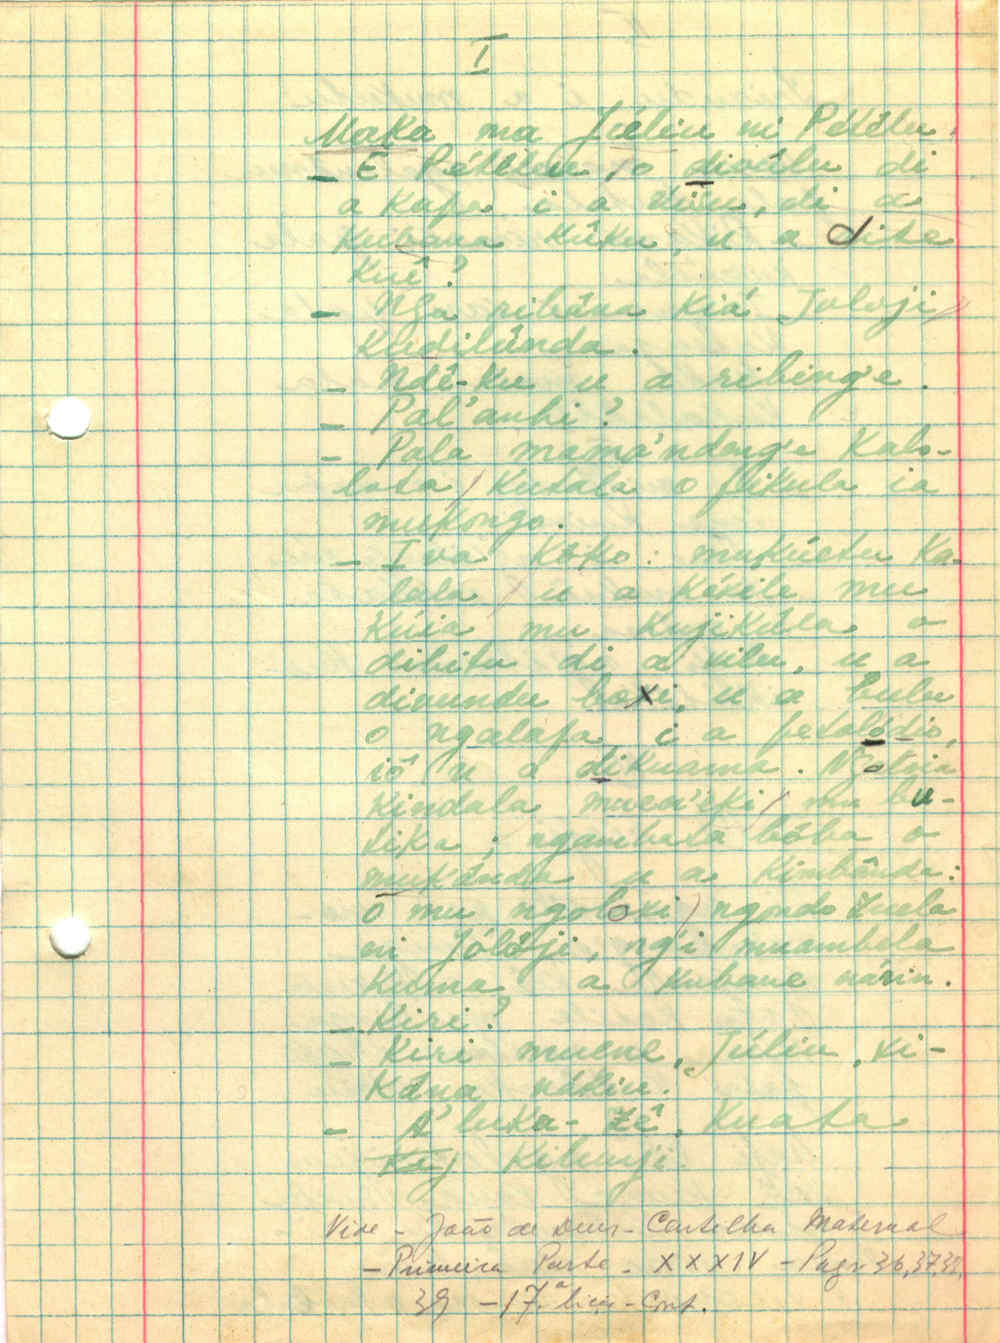 I
Maka ma Júliu ni Pétélu.
- E Pétélu, o divúlu di
a Kufu i a vulu, di a
kubana kúku, u a dite
kuê?
- Nga ribâna kiá Joloji
Kudilûnda.
- Ndê-ku u a ribing'e.
- Pal'anhi?
- Pala mamá'ndenge Kalo-
lata, kutala o fikula ia
mukongo.
- Iva koko: mukúetu Ka-
lala, u a kéxile mu
kúia mu kujikúla o
dibitu di a vilu, u a
divundu boxi, u a bulu
o ngalafa i a petolótio,
iô u a dikuama. Ngoloia
kindala muen'iki, mu bu-
tika; ngambata bôba o
mukánda u a kimbânda:
o mu ngoloxi, ngondo zuela
ni Jóloji, ng'i muambela
kuma a kubane náriu.
- Kiri?
- Kiri muene, Júliu, xi-
kána náliu.
- A'luka-zê, kuata
kilunji.
Vide - João de Deus - Cartilha Maternal
- Primeira Parte - XXXIV - Pags 36, 37, 38,
39 - 17.ª lição - Cont.